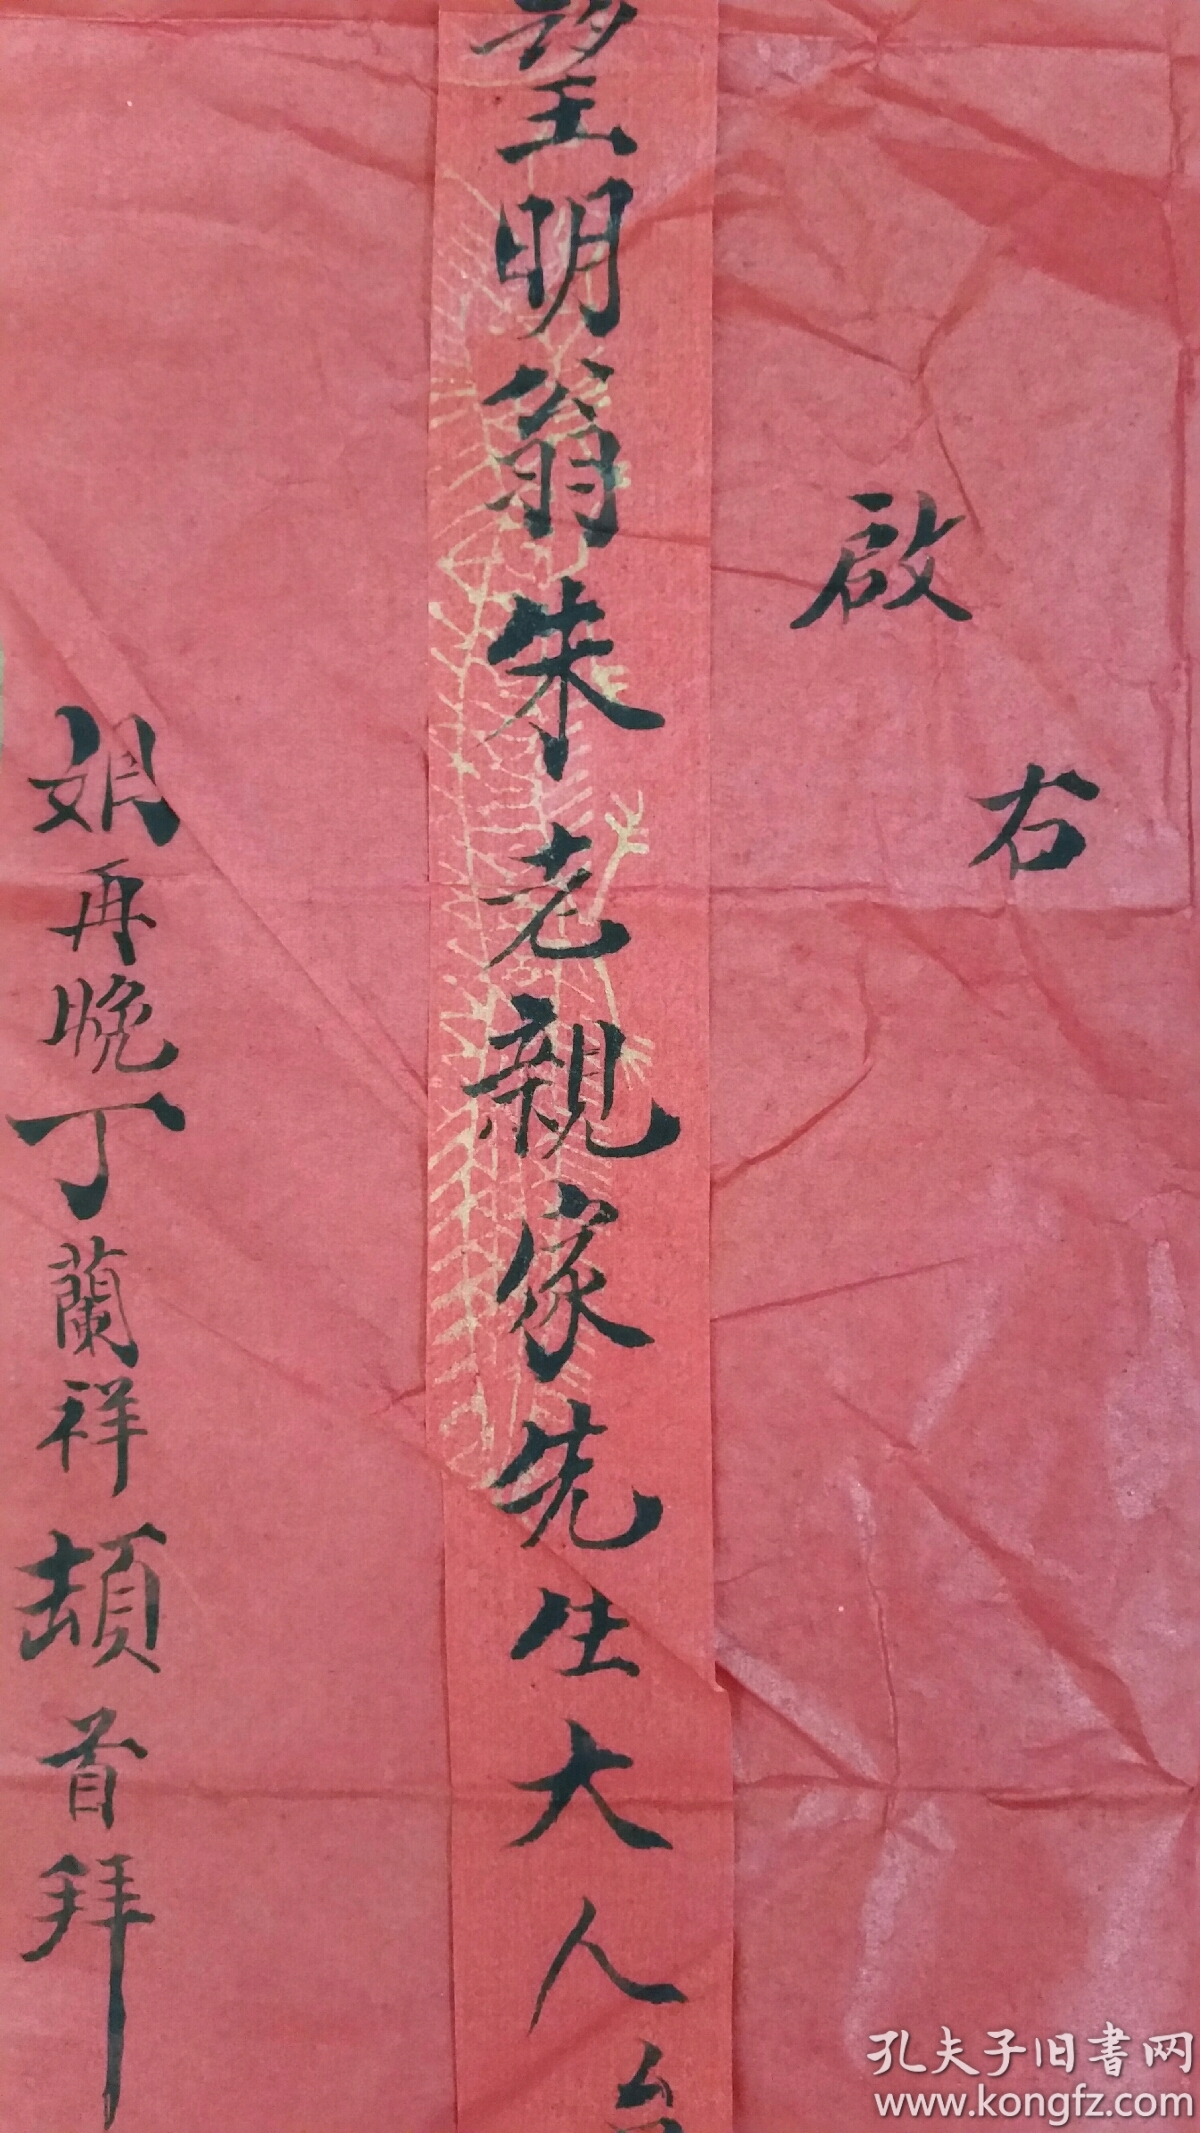 右
啟
望明翁朱老親家先生大人台
姻再晚丁蘭祥頓首拜
孔夫子旧書网
www.kongfz.com